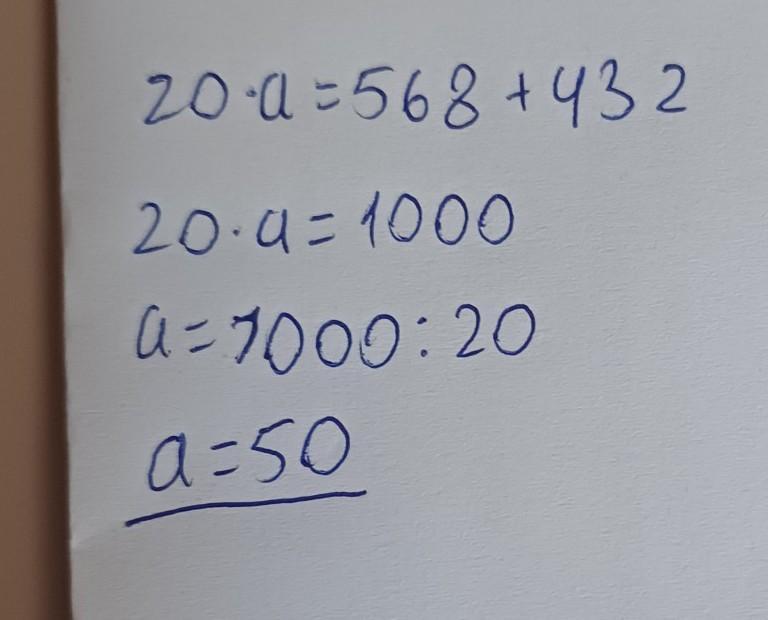 20·a=568+432
20·a=1000
a=1000:20
a=50